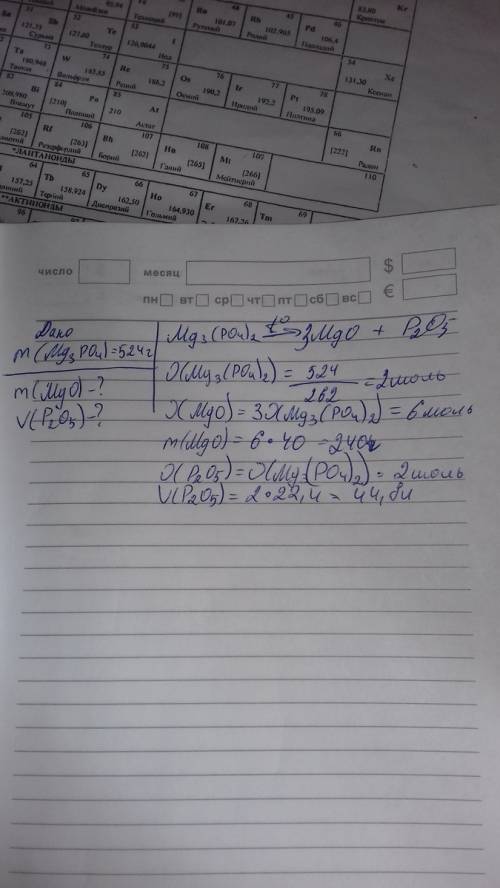 83,80 Криптон
121,75
Сурьма
127,60
Теллур
126,9044
Иод
101,07
Рутений
Rh
102,905
Pd
106,4
Палладий
Kr
Ta
180,948
Тантал
W 74
183,85
Вольфрам
Re 75
186,2
Рений
Os 76
190,2
Осмий
Ir 77
192,2
Иридий
Pt 78
195,09
Платина
54 Xe
131,30
Ксенон
83 Bi
208,980
Висмут
84 Po
[210]
Полоний
85 At
210
Астат
86 Rn
[222]
Радон
105
[262]
Rf 106
[263]
Резерфордий
Bh 107
[262]
Борий
Hn 108
[265]
Ганий
Mt 109
[266]
Мейтнерий
110
*ЛАНТАНОИДЫ
64
157,25
Tb 65
158,924
Тербий
Dy 66
162,50
Диспрозий
Ho 67
164,930
Гольмий
Er 68
167,26
Tm 69
**АКТИНОИДЫ
96
число месяц $
€
пн вт ср чт пт сб вс
Дано
m(Mg3PO4)=524г
m(MgO)-?
V(P2O5)-?
Mg3(PO4)2 t° 3MgO + P2O5
ϑ(Mg3(PO4)2) = 524/262 = 2моль
ϑ(MgO) = 3ϑ(Mg3(PO4)2) = 6моль
m(MgO) = 6·40 = 240г
ϑ(P2O5) = ϑ(Mg3(PO4)2) = 2моль
V(P2O5) = 2·22,4 = 44,8л